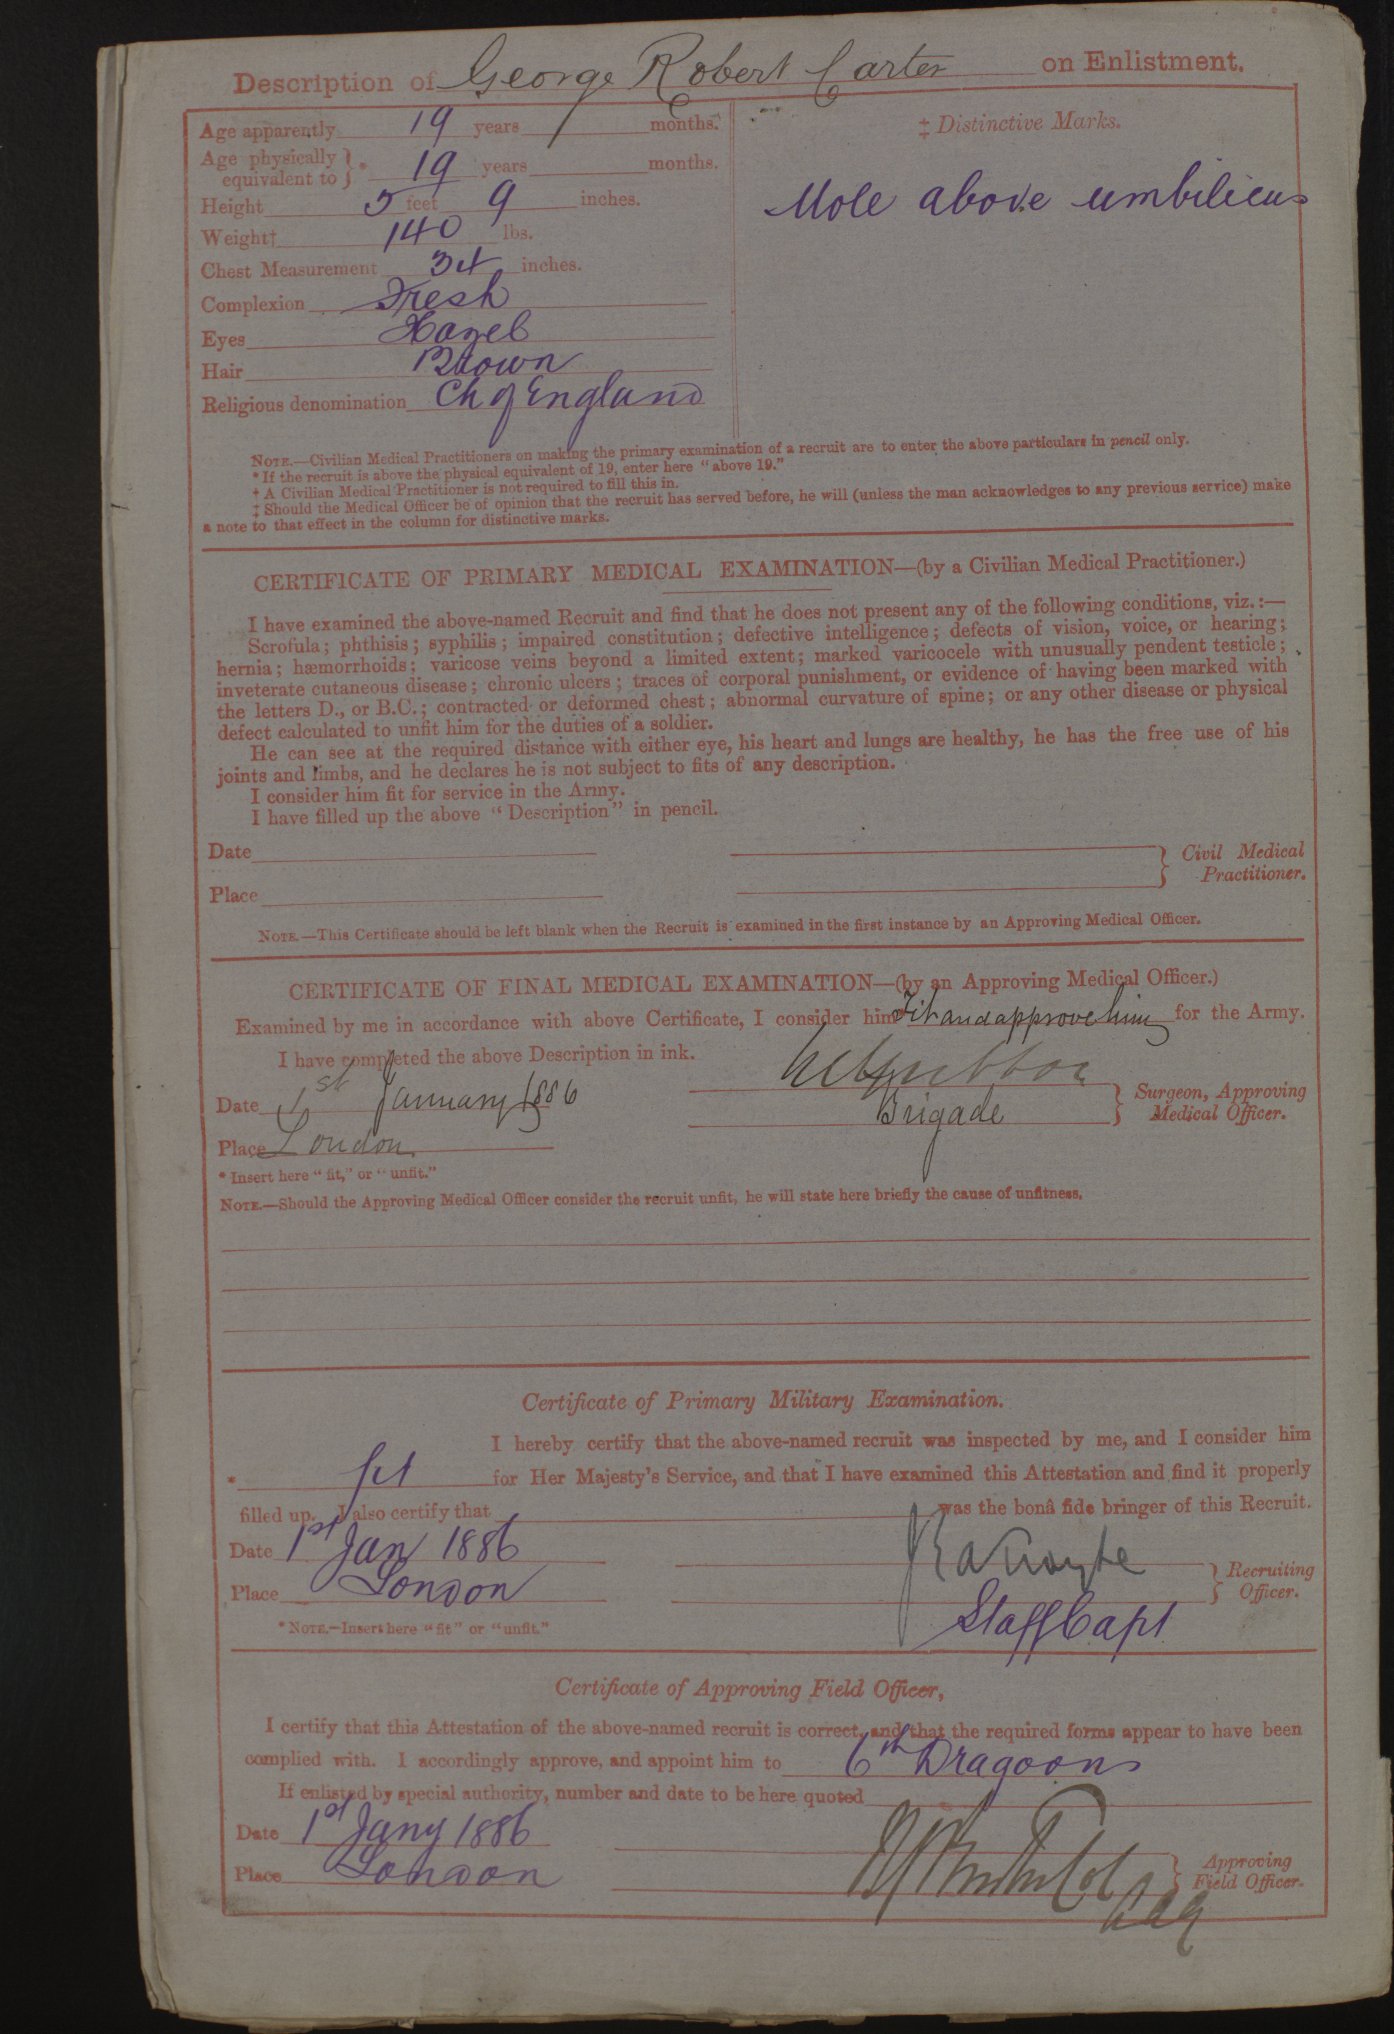 Description of George Robert Carter on Enlistment.
Age apparently 19 years months.
Age physically equivalent to }* 19 years months.
Height 5 feet 9 inches.
Weight† 140 lbs.
Chest Measurement 34 inches.
Complexion Fresh
Eyes Hazel
Hair Brown
Religious denomination Ch of England
‡ Distinctive Marks.
Mole above umbilicus
NOTE.—Civilian Medical Practitioners on making the primary examination of a recruit are to enter the above particulars in pencil only.
* If the recruit is above the physical equivalent of 19, enter here "above 19."
† A Civilian Medical Practitioner is not required to fill this in.
‡ Should the Medical Officer be of opinion that the recruit has served before, he will (unless the man acknowledges to any previous service) make
a note to that effect in the column for distinctive marks.
CERTIFICATE OF PRIMARY MEDICAL EXAMINATION—(by a Civilian Medical Practitioner.)
I have examined the above-named Recruit and find that he does not present any of the following conditions, viz.:—
Scrofula; phthisis; syphilis; impaired constitution; defective intelligence; defects of vision, voice, or hearing;
hernia; hæmorrhoids; varicose veins beyond a limited extent; marked varicocele with unusually pendent testicle;
inveterate cutaneous disease; chronic ulcers; traces of corporal punishment, or evidence of having been marked with
the letters D., or B.C.; contracted or deformed chest; abnormal curvature of spine; or any other disease or physical
defect calculated to unfit him for the duties of a soldier.
He can see at the required distance with either eye, his heart and lungs are healthy, he has the free use of his
joints and limbs, and he declares he is not subject to fits of any description.
I consider him fit for service in the Army.
I have filled up the above "Description" in pencil.
Date
Place
Civil Medical
Practitioner.
NOTE.—This Certificate should be left blank when the Recruit is examined in the first instance by an Approving Medical Officer.
CERTIFICATE OF FINAL MEDICAL EXAMINATION—(by an Approving Medical Officer.)
Examined by me in accordance with above Certificate, I consider him Fit and approve him for the Army.
I have completed the above Description in ink.
Date 1st January 1886
Brigade
Surgeon, Approving
Medical Officer.
Place London
* Insert here "fit," or "unfit."
NOTE.—Should the Approving Medical Officer consider the recruit unfit, he will state here briefly the cause of unfitness.
Certificate of Primary Military Examination.
I hereby certify that the above-named recruit was inspected by me, and I consider him
* fit for Her Majesty's Service, and that I have examined this Attestation and find it properly
filled up. I also certify that was the bonâ fide bringer of this Recruit.
Date 1st Jan 1886
Place London
Staff Capt
Recruiting
Officer.
* NOTE.—Insert here "fit" or "unfit."
Certificate of Approving Field Officer,
I certify that this Attestation of the above-named recruit is correct, and that the required forms appear to have been
complied with. I accordingly approve, and appoint him to 6th Dragoons
If enlisted by special authority, number and date to be here quoted
Date 1st Jany 1886
Place London
Col
Approving
Field Officer.